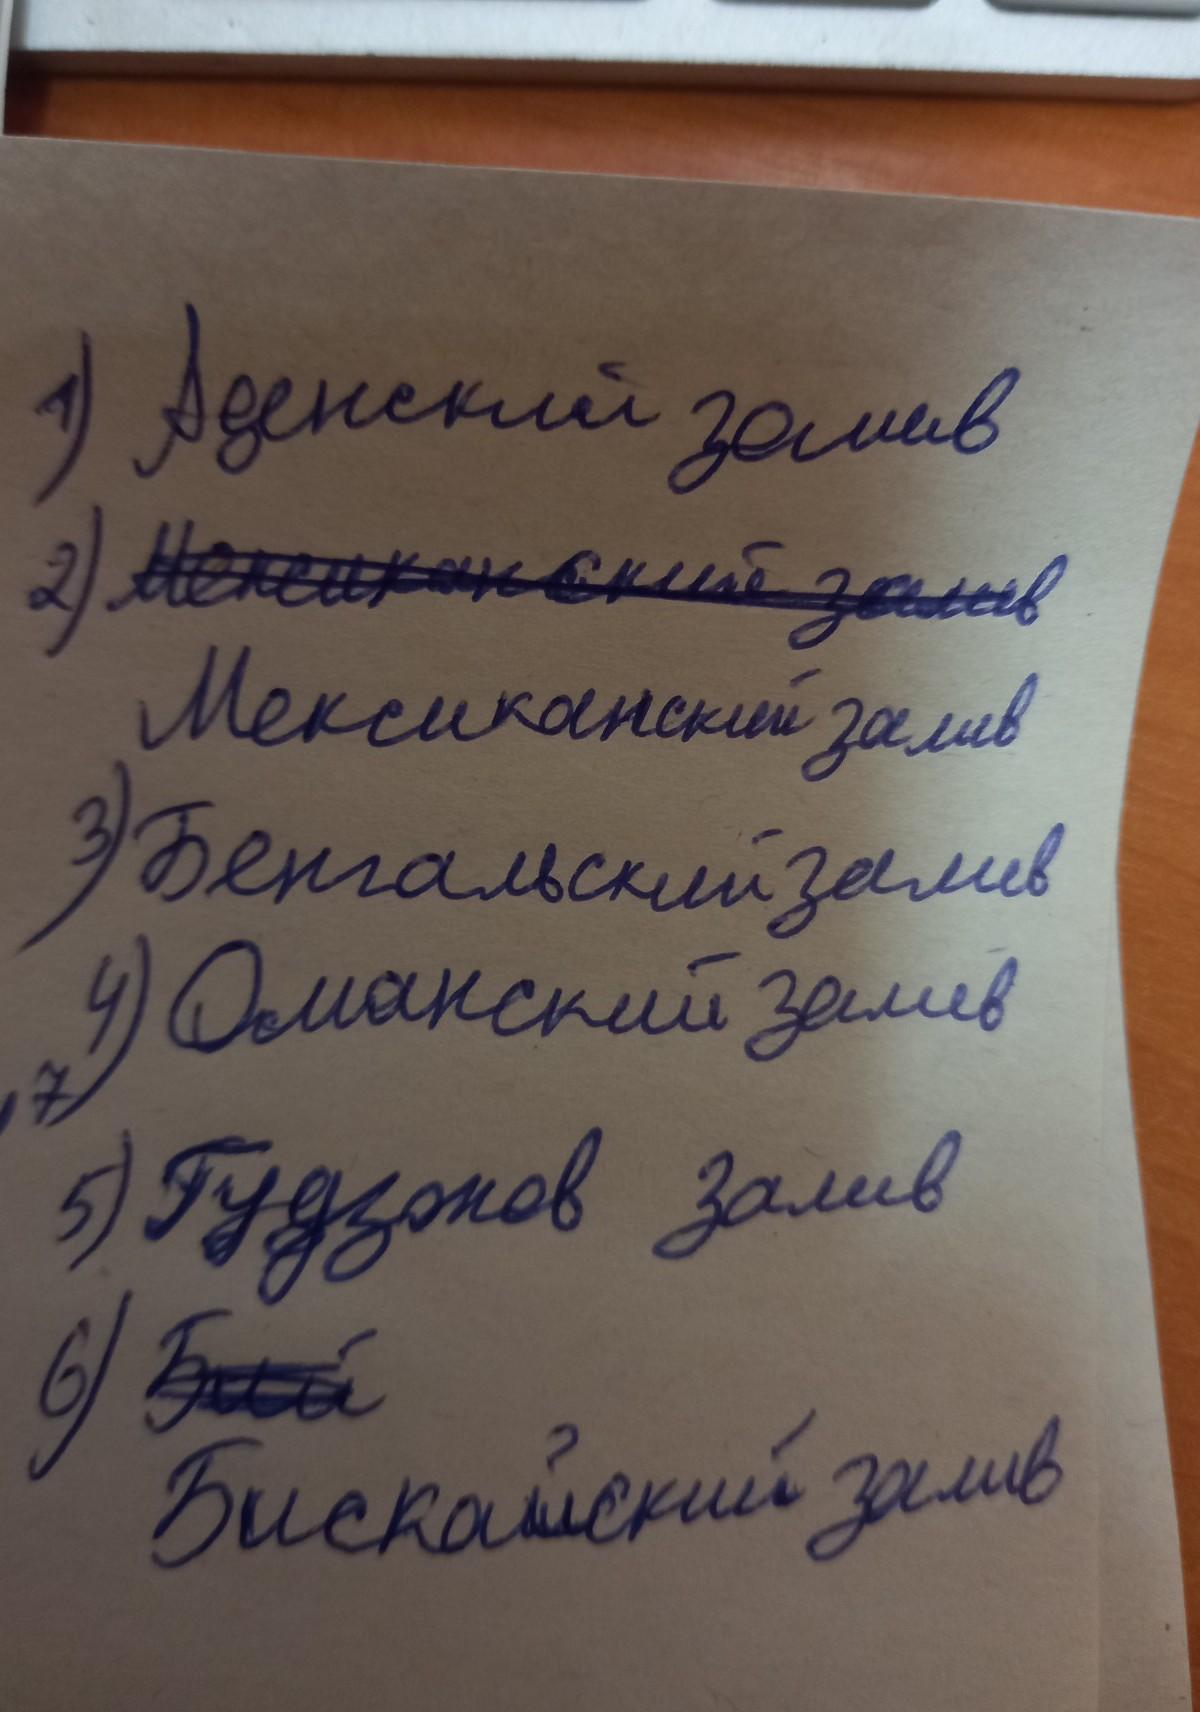 1) Аденский залив
2) Мексиканский залив
Мексиканский залив
3) Бенгальский залив
4) Оманский залив
, 7
5) Гудзонов залив
6)
Бискайский залив